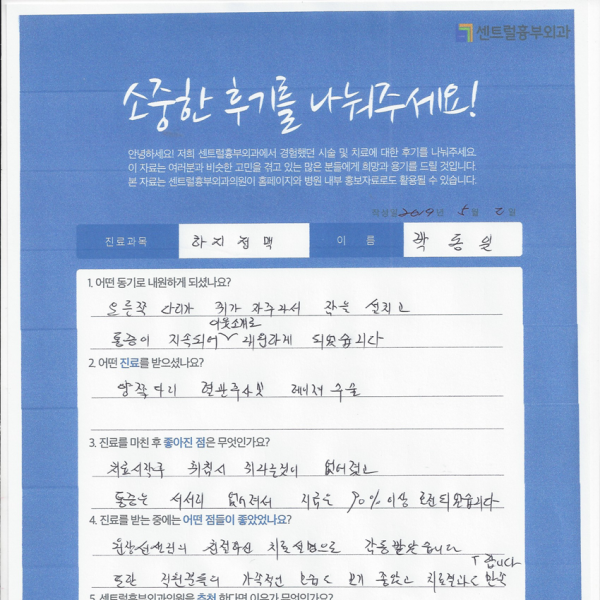 센트럴흉부외과
소중한 후기를 나눠주세요!
안녕하세요! 저희 센트럴흉부외과에서 경험했던 시술 및 치료에 대한 후기를 나눠주세요.
이 자료는 여러분과 비슷한 고민을 겪고 있는 많은 분들에게 희망과 용기를 드릴 것입니다.
본 자료는 센트럴흉부외과의원이 홈페이지와 병원 내부 홍보자료로도 활용될 수 있습니다.
작성일 2019년 5월 2일
진료과목 하지정맥 이 름 곽동일
1. 어떤 동기로 내원하게 되셨나요?
오른쪽 다리가 쥐가 자주나서 잠을 설치고
이웃소개로
통증이 지속되어 내원하게 되었습니다
2. 어떤 진료를 받으셨나요?
양쪽 다리 혈관주사및 레이저 수술
3. 진료를 마친 후 좋아진 점은 무엇인가요?
치료시작후 취침시 쥐나는것이 없어졌고
통증은 서서히 없어져서 지금은 90%이상 호전되었습니다
4. 진료를 받는 중에는 어떤 점들이 좋았었나요?
원장선생님의 친절하신 치료설명으로 감동받았습니다
또한 직원분들의 가족적인 보기 좋았고 치료결과도 만족
합니다
5. 센트럴흉부외과의원을 추천 한다면 이유가 무엇인가요?